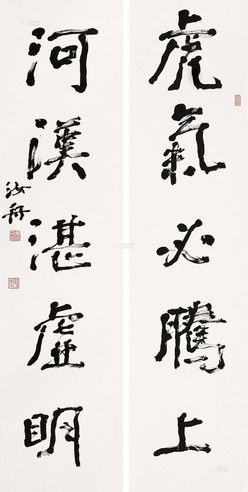 虎氣必騰上
河漢湛虛明
汝舟